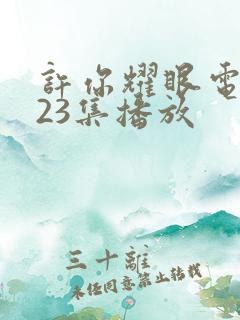 許你耀眼電
23集播放
三十離
未经同意禁止转载